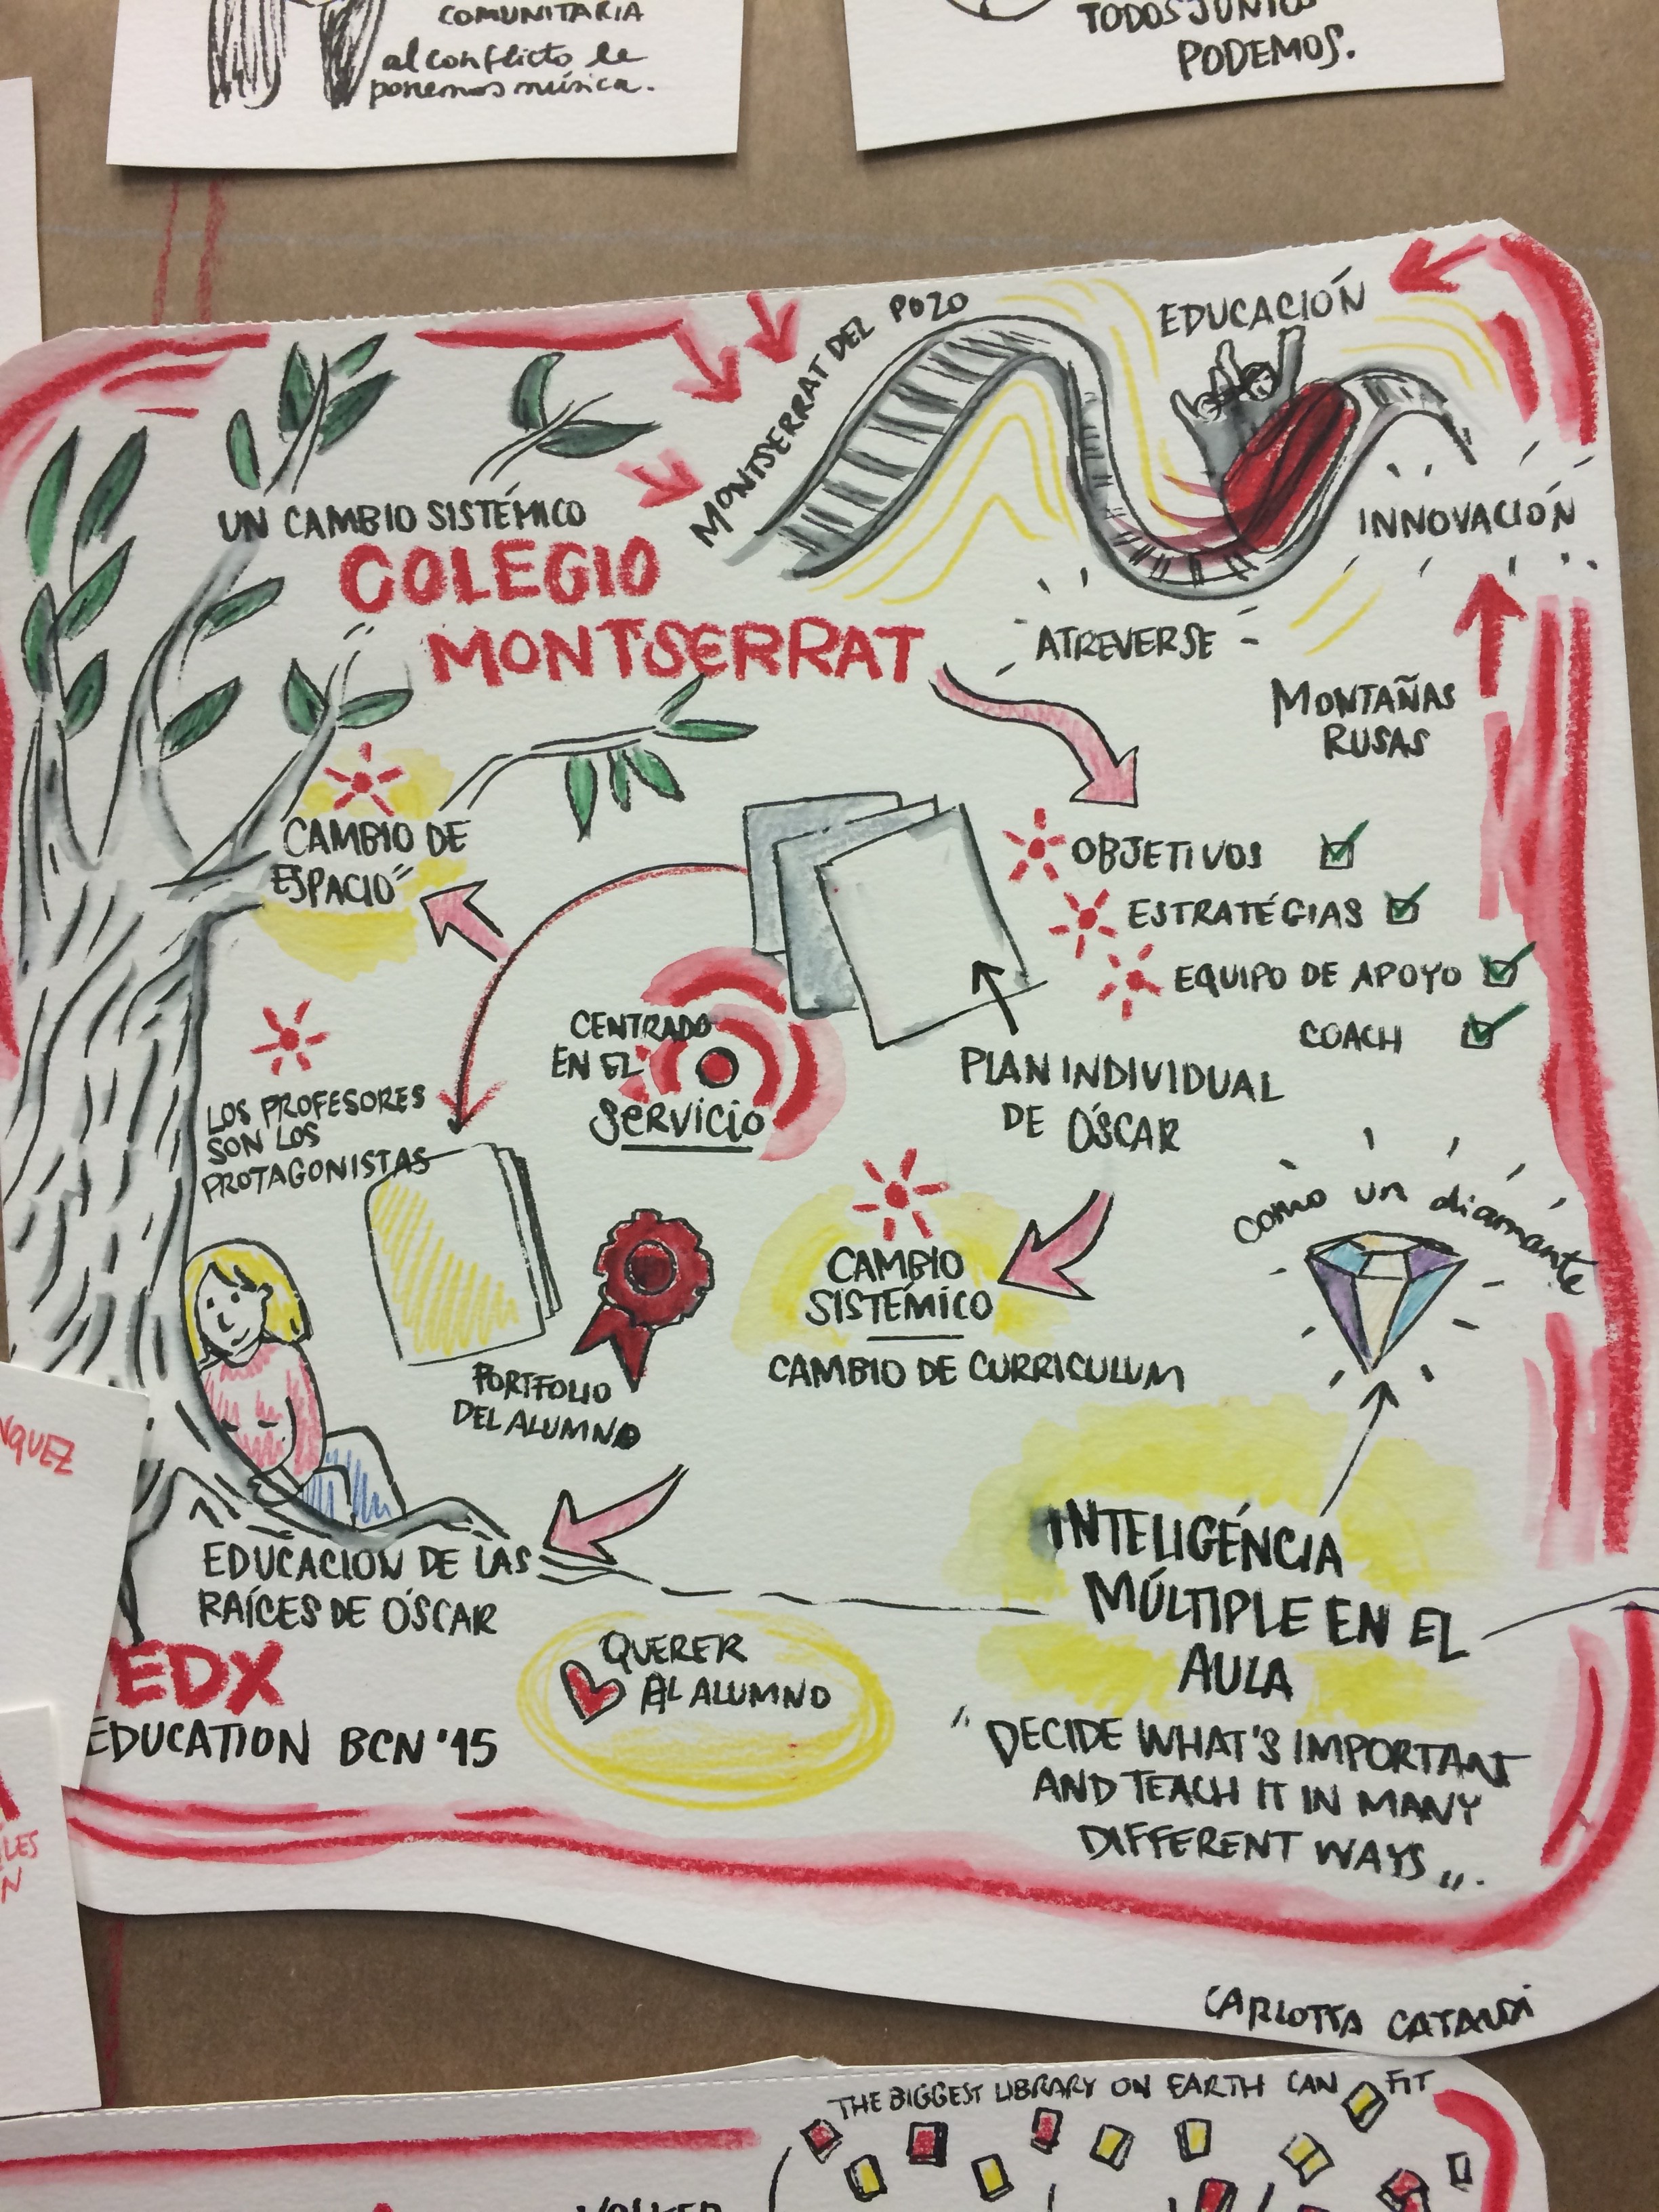 COMUNITARIA
al conflicto le
ponemos música.
TODOS JUNTOS
PODEMOS.
MONTSERRAT DEL POZO
EDUCACIÓN
UN CAMBIO SISTÉMICO
COLEGIO
MONTSERRAT
INNOVACIÓN
ATREVERSE
MONTAÑAS
RUSAS
CAMBIO DE
ESPACIO"
OBJETIVOS
ESTRATÉGIAS
EQUIPO DE APOYO
COACH
CENTRADO
EN EL
SERVICIO
PLAN INDIVIDUAL
DE ÓSCAR
LOS PROFESORES
SON LOS
PROTAGONISTAS
como un diamante
CAMBIO
SISTÉMICO
CAMBIO DE CURRICULUM
PORTFOLIO
DEL ALUMNO
NQUEZ
INTELIGÉNCIA
MÚLTIPLE EN EL
AULA
EDUCACIÓN DE LAS
RAÍCES DE ÓSCAR
QUERER
AL ALUMNO
EDX
EDUCATION BCN '15
"DECIDE WHAT'S IMPORTANT
AND TEACH IT IN MANY
DIFFERENT WAYS...
LES
N
CARLOTTA CATALDI
THE BIGGEST LIBRARY ON EARTH CAN FIT